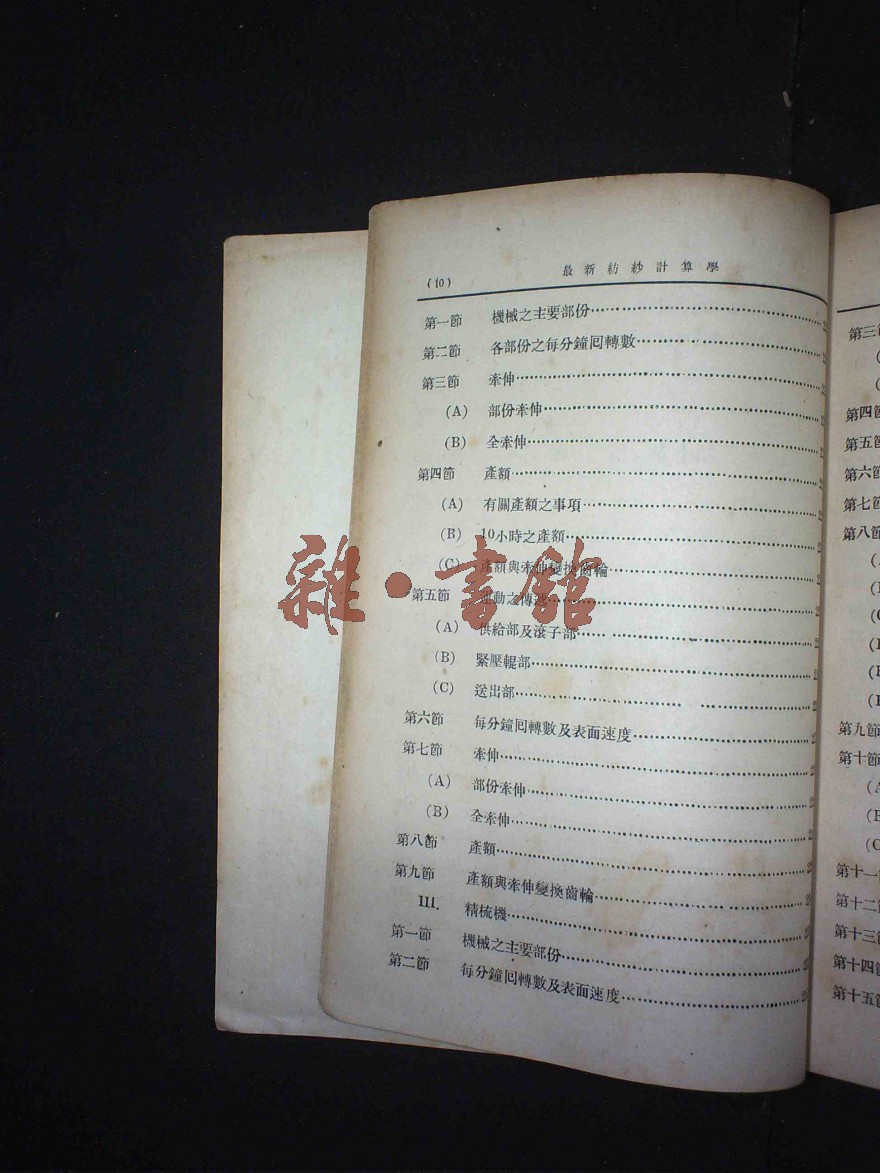 (10) 最新紡紗計算學
第一節 機械之主要部份
第二節 各部份之每分鐘囘轉數
第三節 牽伸
(A) 部份牽伸
(B) 全牽伸
第四節 產額
(A) 有關產額之事項
(B) 10小時之產額
(C) 產額與牽伸變換齒輪
第五節 運動之傳遞
(A) 供給部及滾子部
(B) 緊壓輥部
(C) 送出部
第六節 每分鐘囘轉數及表面速度
第七節 牽伸
(A) 部份牽伸
(B) 全牽伸
第八節 產額
第九節 產額與牽伸變換齒輪
III. 精梳機
第一節 機械之主要部份
第二節 每分鐘囘轉數及表面速度
雜·書館
第三
第四
第五
第六
第七
第八節
第九節
第十節
第十一
第十二
第十三
第十四
第十五